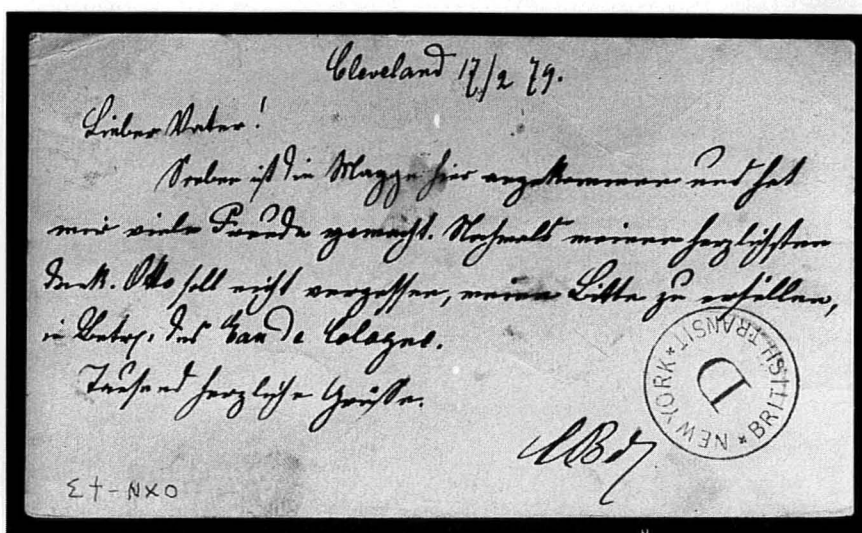 Cleveland 17/2 79.
Lieber Vater!
Soeben ist die Mappe hier angekommen und hat
mir viele Freude gemacht. Nochmals meinen herzlichsten
Dank. Otto soll nicht vergessen, meine Bitte zu erfüllen,
in Betr. des Eau de Cologne.
Tausend herzliche Grüsse.
NEW YORK * BRITISH TRANSIT *
D